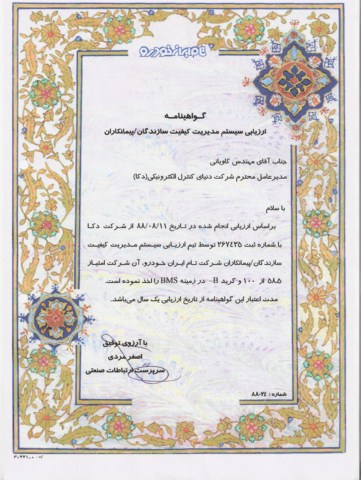 تام ایران خودرو
گـواهینامه
ارزیابی سیستم مدیریت کیفیت سازندگان/پیمانکاران
جناب آقای مهندس کاویانی
مدیرعامل محترم شرکت دنیای کنترل الکترونیکی(دکا)
با سلام
براساس ارزیابی انجام شده در تاریخ ۸۸/۰۸/۱۱ از شرکت دکا
با شماره ثبت ۲۶۷٤۳۵ توسط تیم ارزیابی سیستم مدیریت کیفیت
سازندگان/پیمانکاران شرکت تام ایران خودرو، آن شرکت امتیاز
۵۸.۵ از ۱۰۰ و گرید B- در زمینه BMS را اخذ نموده است.
مدت اعتبار این گواهینامه از تاریخ ارزیابی یک سال می‌باشد.
با آرزوی توفیق
اصغر مردی
سرپرست ارتباطات صنعتی
شماره : ۸۸-۰۲٤